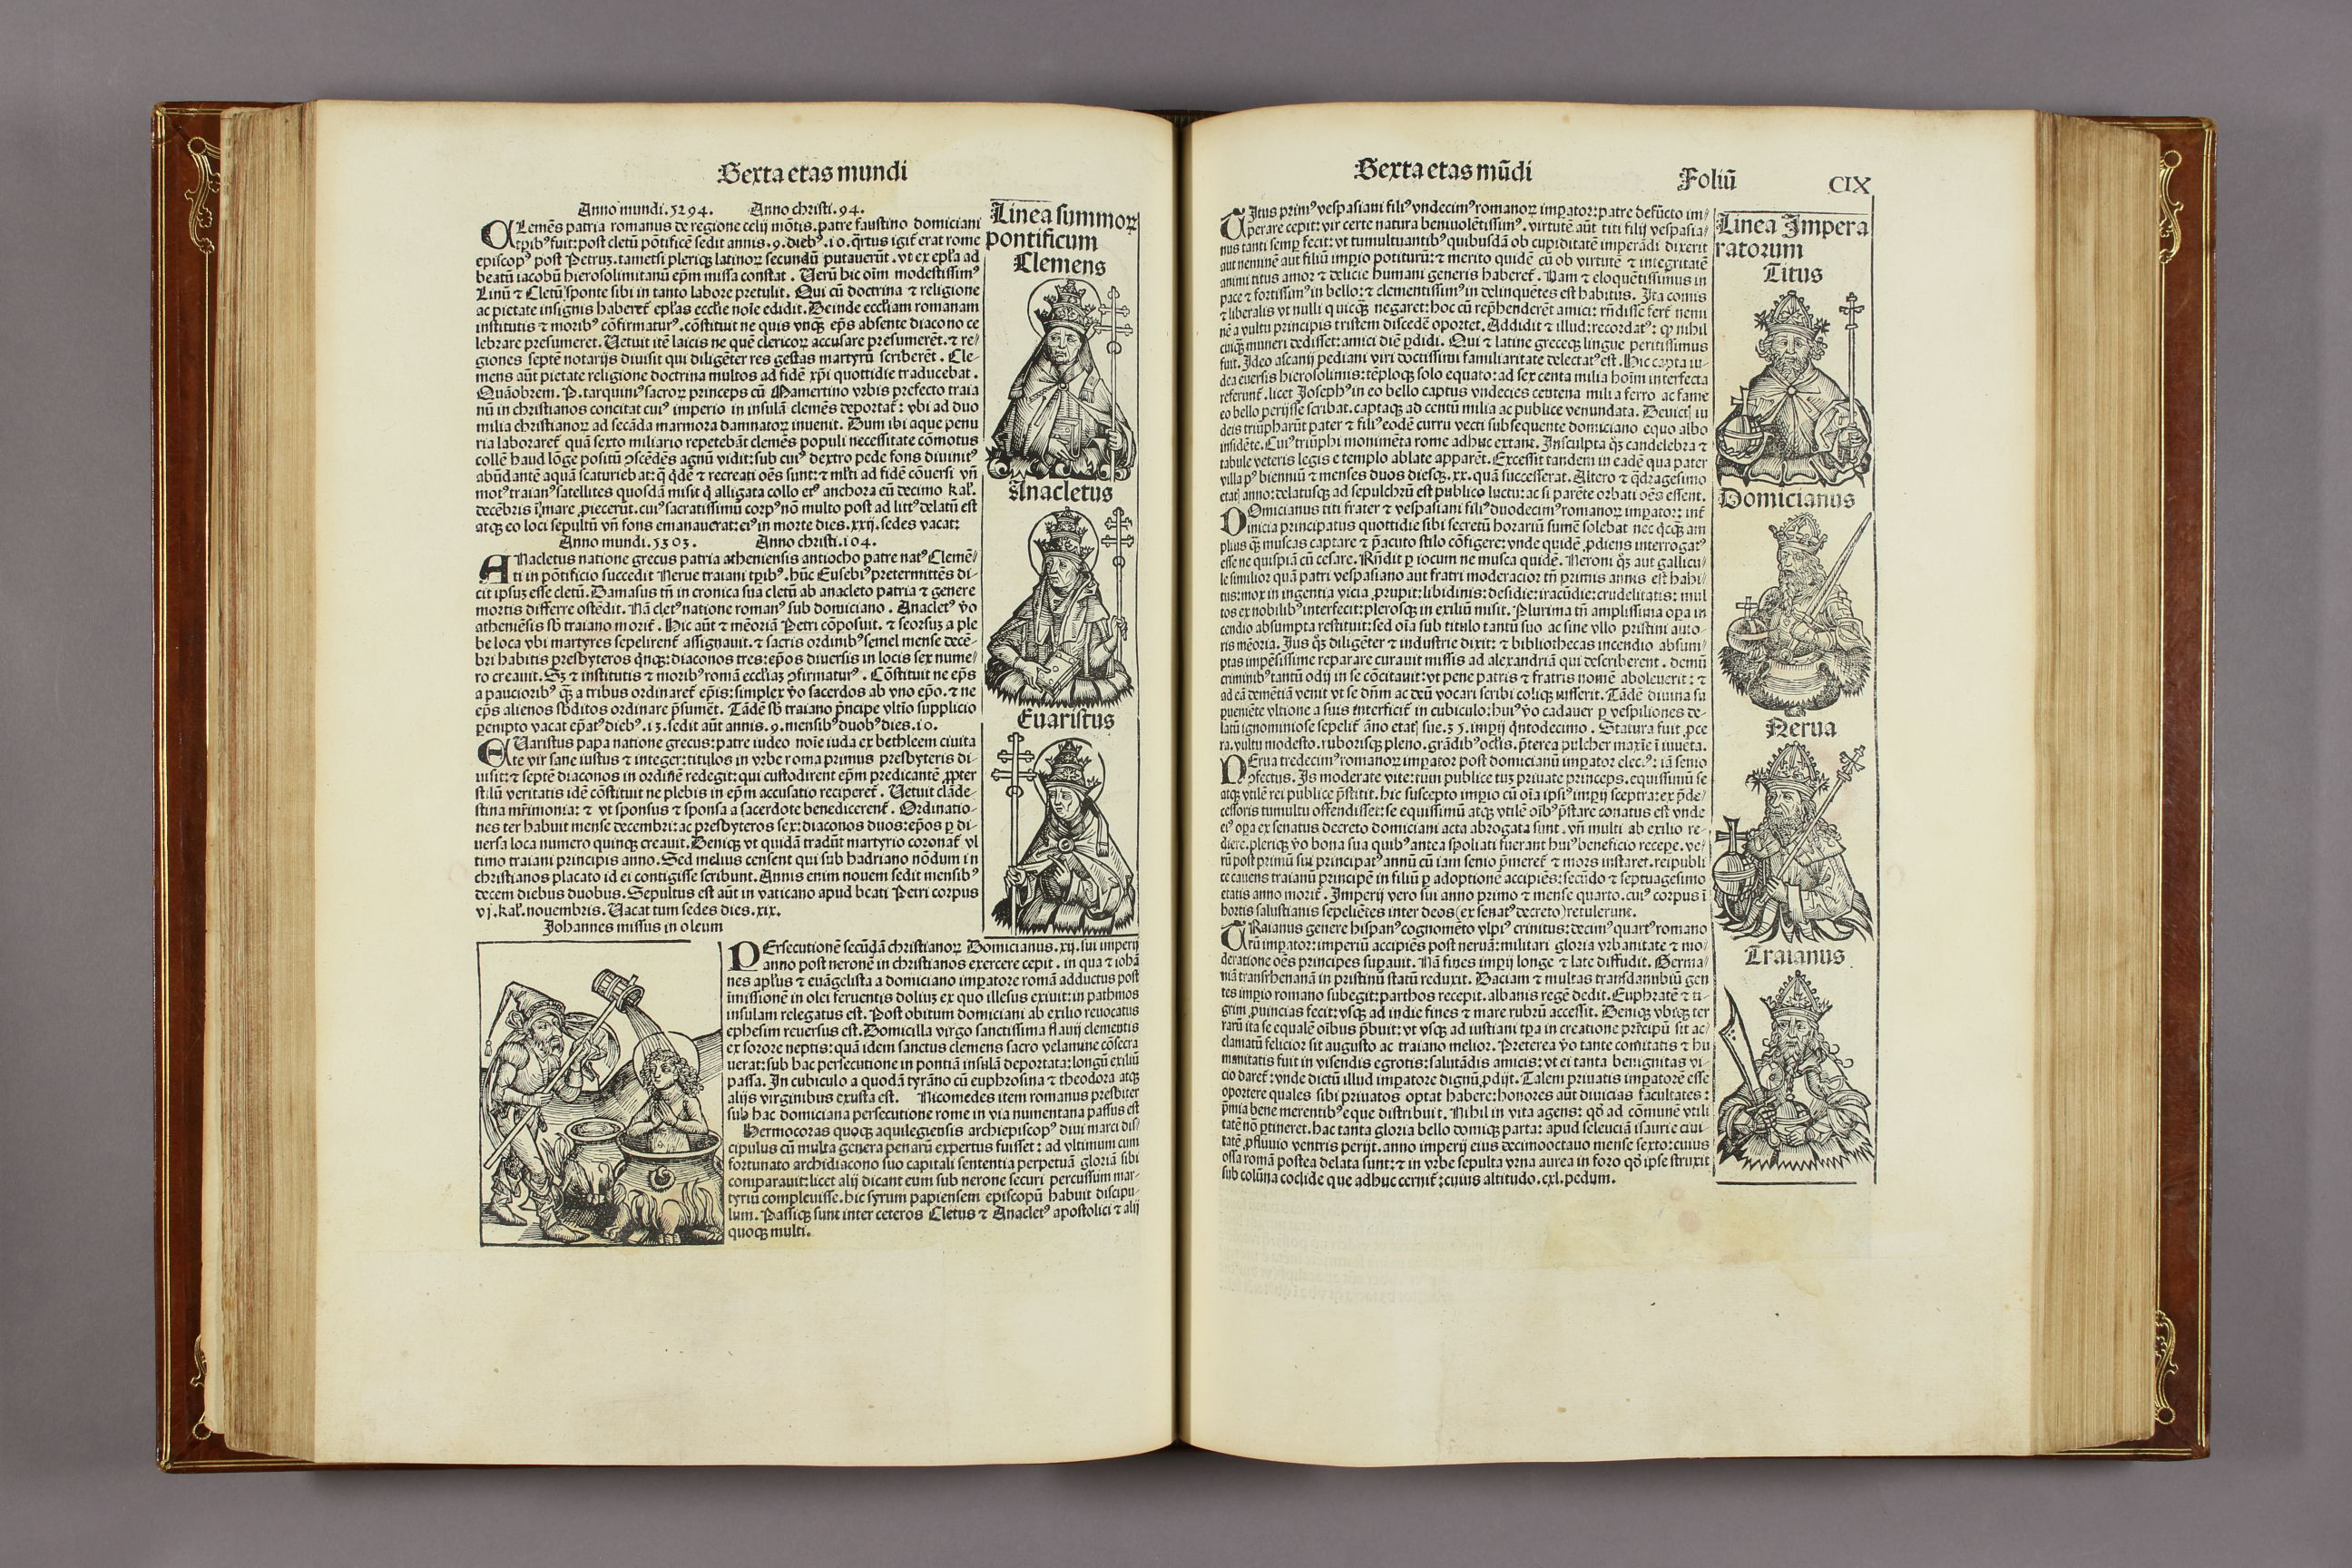 Sexta etas mundi
Anno mundi.5294. Anno christi.94.
CLemēs patria romanus de regione celij mōtis.patre faustino domiciani
tꝑibꝰ fuit:post cletū pōtificē sedit annis.9.diebꝰ.10.q̄rtus igit̄ erat rome
episcopꝰ post Petruꝫ.tametsi pleriqꝫ latinoꝝ secundū putauerūt.vt ex epl̄a ad
beatū iacobū hierosolimitanū ep̄m missa constat. Uerū hic oīm modestissimꝰ
Linū ⁊ Cletū sponte sibi in tanto labore pretulit. Qui cū doctrina ⁊ religione
ac pietate insignis haberet̄ epl̄as eccl̄ie noīe edidit. Deinde eccl̄iam romanam
institutis ⁊ moribꝰ cōfirmaturꝰ.cōstituit ne quis vnqꝫ ep̄s absente diacono ce
lebrare presumeret. Uetuit itē laicis ne quē clericoꝝ accusare presumerēt.⁊ re⸗
giones septē notarijs diuisit qui diligēter res gestas martyrū scriberēt. Cle⸗
mens aūt pietate religione doctrina multos ad fidē xp̄i quottidie traducebat.
Quāobrem. P. tarquiniꝰ sacroꝝ princeps cū Mamertino vrbis prefecto traia
nū in christianos concitat cuiꝰ imperio in insulā clemēs deportat̄: vbi ad duo
milia christianoꝝ ad secāda marmora damnatoꝝ inuenit. Dum ibi aque penu
ria laboraret̄ quā sexto miliario repetebāt clemēs populi necessitate cōmotus
collē haud lōge positū ꝯscēdēs agnū vidit:sub cuiꝰ dextro pede fons diuinitꝰ
abūdantē aquā scaturiebat:q̄ q̄dē ⁊ recreati oēs sunt:⁊ ml̄ti ad fidē cōuersi vn̄
motꝰ traianꝰ satellites quosdā misit q̄ alligata collo eiꝰ anchora eū decimo kal̄.
decēbris ī mare ꝓiecerūt.cuiꝰ sacratissimū corpꝰ nō multo post ad littꝰ delatū est
atqꝫ eo loci sepultū vn̄ fons emanauerat:eiꝰ in morte dies.xxij.sedes vacat:
Anno mundi.5303. Anno christi.104.
ANacletus natione grecus patria atheniensis antiocho patre natꝰ Clemē⸗
ti in pōtificio succedit Nerue traiani tꝑibꝰ.hūc Eusebiꝰ pretermittēs di⸗
cit ipsuꝫ esse cletū. Damasus tn̄ in cronica sua cletū ab anacleto patria ⁊ genere
mortis differre ostēdit. Nā cletꝰ natione romanꝰ sub domiciano. Anacletꝰ v̄o
atheniēsis sb̄ traiano morit̄. Hic aūt ⁊ mēoriā Petri cōposuit. ⁊ seorsuꝫ a ple
be loca vbi martyres sepelirent̄ assignauit.⁊ sacris ordinibꝰ semel mense decē⸗
bri habitis presbyteros q̄nqꝫ:diaconos tres:ep̄os diuersis in locis sex nume⸗
ro creauit. Sꝫ ⁊ institutis ⁊ moribꝰ romā eccl̄iaꝫ ꝯfirmaturꝰ. Cōstituit ne ep̄s
a paucioribꝰ qꝫ a tribus ordinaret̄ ep̄is:simplex v̄o sacerdos ab vno ep̄o.⁊ ne
ep̄s alienos sb̄ditos ordinare p̄sumēt. Tādē sb̄ traiano p̄ncipe vltīo supplicio
perempto vacat ep̄atꝰ diebꝰ.13.sedit aūt annis.9.mensibꝰ duobꝰ dies.10.
EUaristus papa natione grecus:patre iudeo noīe iuda ex bethleem ciuita
te vir sane iustus ⁊ integer:titulos in vrbe roma primus presbyteris di⸗
uisit:⁊ septē diaconos in ordinē redegit:qui custodirent ep̄m predicantē ꝓpter
stilū veritatis idē cōstituit ne plebis in ep̄m accusatio reciperet̄. Uetuit clāde⸗
stina mr̄imonia:⁊ vt sponsus ⁊ sponsa a sacerdote benedicerent̄. Ordinatio⸗
nes ter habuit mense decembri:ac presbyteros sex:diaconos duos:ep̄os ꝑ di⸗
uersa loca numero quinqꝫ creauit. Deniqꝫ vt quidā tradūt martyrio coronat̄ vl
timo traiani principis anno. Sed melius censent qui sub hadriano nōdum in
christianos placato id ei contigisse scribunt. Annis enim nouem sedit mensibꝰ
decem diebus duobus. Sepultus est aūt in vaticano apud beati Petri corpus
vj.kal̄.nouembris. Uacat tum sedes dies.xix.
Johannes missus in oleum
PErsecutionē secūdā christianoꝝ Domicianus.xij.sui imperij
anno post neronē in christianos exercere cepit. in qua ⁊ iohā
nes apl̄us ⁊ euāgelista a domiciano imꝑatore romā adductus post
īmissionē in olei feruentis doliuꝫ ex quo illesus exiuit:in pathmos
insulam relegatus est. Post obitum domiciani ab exilio reuocatus
ephesim reuersus est. Domicilla virgo sanctissima flauij clementis
ex sorore neptis:quā idem sanctus clemens sacro velamine cōsecra
uerat:sub hac persecutione in pontiā insulā deportata:longū exiliū
passa. In cubiculo a quodā tyrāno cū euphrosina ⁊ theodora atqꝫ
alijs virginibus exusta est. Nicomedes item romanus presbiter
sub hac domiciana persecutione rome in via numentana passus est
Hermocoras quoqꝫ aquilegiensis archiepiscopꝰ diui marci dis⸗
cipulus cū multa genera penarū expertus fuisset: ad vltimum cum
fortunato archidiacono suo capitali sententia perpetuā gloriā sibi
comparauit:licet alij dicant eum sub nerone securi percussum mar⸗
tyriū compleuisse.hic syrum papiensem episcopū habuit discipu⸗
lum. Passiqꝫ sunt inter ceteros Cletus ⁊ Anacletꝰ apostolici ⁊ alij
quoqꝫ multi.
Linea summoꝝ
pontificum
Clemens
Anacletus
Evaristus
Sexta etas mūdi Foliū CIX
TItus primꝰ vespasiani filiꝰ vndecimꝰ romanoꝝ imꝑator:patre defūcto im⸗
perare cepit:vir certe natura beniuolētissimꝰ.virtutē aūt titi filij vespasia⸗
nus tanti semꝑ fecit:vt tumultuantibꝰ quibusdā ob cupiditatē imperādi dixerit
aut neminē aut filiū imꝑio potiturū:⁊ merito quidē cū ob virtutē ⁊ integritatē
animi titus amor ⁊ delicie humani generis haberet̄. Nam ⁊ eloquētissimus in
pace ⁊ fortissimꝰ in bello:⁊ clementissimꝰ in delinquētes est habitus. Ita comis
⁊ liberalis vt nulli quicqꝫ negaret:hoc cū rep̄henderēt amici: rn̄disse fert̄ nemi
nē a vultu principis tristem discedē oportet. Addidit ⁊ illud:recordatꝰ: qꝫ nihil
cuiqꝫ muneri dedisset:amici diē ꝑdidi. Qui ⁊ latine greceqꝫ lingue peritissimus
fuit. Ideo ascanij pediani viri doctissimi familiaritate delectatꝰ est. Hic capta iu⸗
dea euersis hierosolimis:tēploqꝫ solo equato:ad sexcenta milia hoīm interfecta
referunt̄. licet Josephꝰ in eo bello captus vndecies centena milia ferro ac fame
eo bello perijsse scribat.captaqꝫ ad centū milia ac publice venundata. Deuictꝭ iu
deis triūpharūt pater ⁊ filiꝰ eodē curru vecti subsequente domiciano equo albo
insidēte. Cuiꝰ triūphi monimēta rome adhuc extant. Insculpta qꝫ candelebra ⁊
tabule veteris legis e templo ablate apparēt. Excessit tandem in eadē qua pater
villa pꝰ bienniū ⁊ menses duos diesqꝫ.xx.quā successerat. Altero ⁊ q̄dragesimo
etatꝭ anno:delatusqꝫ ad sepulchrū est publico luctu:ac si parēte orbati oēs essent.
DOmicianus titi frater ⁊ vespasiani filiꝰ duodecimꝰ romanoꝝ imꝑator: int̄
inicia principatus quottidie sibi secretū horariū sumē solebat nec q̄cqꝫ am
plius qꝫ muscas captare ⁊ p̄acuto stilo cōfigere:vnde quidē ꝓdiens interrogatꝰ
esse ne quispiā cū cesare. Rn̄dit ꝑ iocum ne musca quidē. Neroni qꝫ aut gallicu⸗
le similior quā patri vespasiano aut fratri moderacior tn̄ primis annis est habi⸗
tus:mox in ingentia vicia ꝓrupit:libidinis:desidie:iracūdie:crudelitatis: mul
tos ex nobilibꝰ interfecit:plerosqꝫ in exiliū misit. Plurima tn̄ amplissima oꝑa in
cendio absumpta restituit:sed oīa sub titulo tantū suo ac sine vllo pristini auto⸗
ris mēoria. Jus qꝫ diligēter ⁊ industrie dixit: ⁊ bibliothecas incendio absum⸗
ptas impēsissime reparare curauit missis ad alexandriā qui describerent. demū
criminibꝰ tantū odij in se cōcitauit:vt pene patris ⁊ fratris nomē aboleuerit: ⁊
ad eā demētiā venit vt se dn̄m ac deū vocari scribi coliqꝫ iusserit. Tādē diuina su
ꝑueniēte vltione a suis interficit̄ in cubiculo:huiꝰ v̄o cadauer ꝑ vespiliones de⸗
latū ignominiose sepelit̄ āno etatꝭ sue.35.imꝑij q̄ntodecimo. Statura fuit ꝓce
ra.vultu modesto.ruborisqꝫ pleno.grādibꝰ ocl̄is.p̄terea pulcher maxīe ī iuuēta.
NErua tredecimꝰ romanoꝝ imꝑator post domicianū imꝑator electꝰ: iā senio
ꝯfectus. Is moderate vite:tum publice tuꝫ priuate princeps.equissimū se
atqꝫ vtilē rei publice p̄stitit. hic suscepto imꝑio cū oīa ipsiꝰ imꝑij sceptra:ex p̄de⸗
cessoris tumultu offendisset:se equissimū atqꝫ vtilē oībꝰ p̄stare conatus est vnde
eiꝰ oꝑa ex senatus decreto domiciani acta abrogata sunt. vn̄ multi ab exilio re⸗
diere.pleriqꝫ v̄o bona sua quibꝰ antea spoliati fuerant huiꝰ beneficio recepe. ve⸗
rū post primū sui principatꝰ annū cū iam senio p̄meret̄ ⁊ mors instaret.reipubli
ce cauens traianū principē in filiū ꝑ adoptionē accipiēs:secūdo ⁊ septuagesimo
etatis anno morit̄. Imperij vero sui anno primo ⁊ mense quarto.cuiꝰ corpus ī
hortis salustianis sepeliētes inter deos(ex senatꝰ decreto)retulerunt.
TRaianus genere hispanꝰ cognomēto vlpiꝰ crinitus:decimꝰ quartꝰ romano
rū imꝑator:imperiū accipiēs post neruā:militari gloria vrbanitate ⁊ mo⸗
deratione oēs principes suꝑauit. Nā fines imꝑij longe ⁊ late diffudit. Germa⸗
niā transrhenanā in pristinū statū reduxit. Daciam ⁊ multas transdanubiū gen
tes imꝑio romano subegit:parthos recepit.albanis regē dedit. Euphratē ⁊ ti⸗
grim ꝓuincias fecit:vsqꝫ ad indie fines ⁊ mare rubrū accessit. Deniqꝫ vbiqꝫ ter
rarū ita se equalē oībus p̄buit:vt vsqꝫ ad iustiani tꝑa in creatione prīcipū sit ac⸗
clamatū felicior sit augusto ac traiano melior. Preterea v̄o tante comitatis ⁊ hu
manitatis fuit in visendis egrotis:salutādis amicis:vt ei tanta benignitas vi⸗
cio daret̄:vnde dictū illud imꝑatore dignū ꝓdijt. Talem priuatis imꝑatorē esse
oportere quales sibi priuatos optat habere:honores aūt diuicias facultates:
p̄mia bene merentibꝰ eque distribuit. Nihil in vita agens: qō ad cōmunē vtili
tatē nō ꝑtineret. hac tanta gloria bello domiqꝫ parta: apud seleuciā isaurie ciui⸗
tatē ꝓfluuio ventris perijt. anno imperij eius decimooctauo mense sexto:cuius
ossa romā postea delata sunt:⁊ in vrbe sepulta vrna aurea in foro qō ipse struxit
sub colūna coclide que adhuc cernit̄:cuius altitudo.cxl.pedum.
Linea Impera
ratorum
Titus
Domicianus
Nerua
Traianus